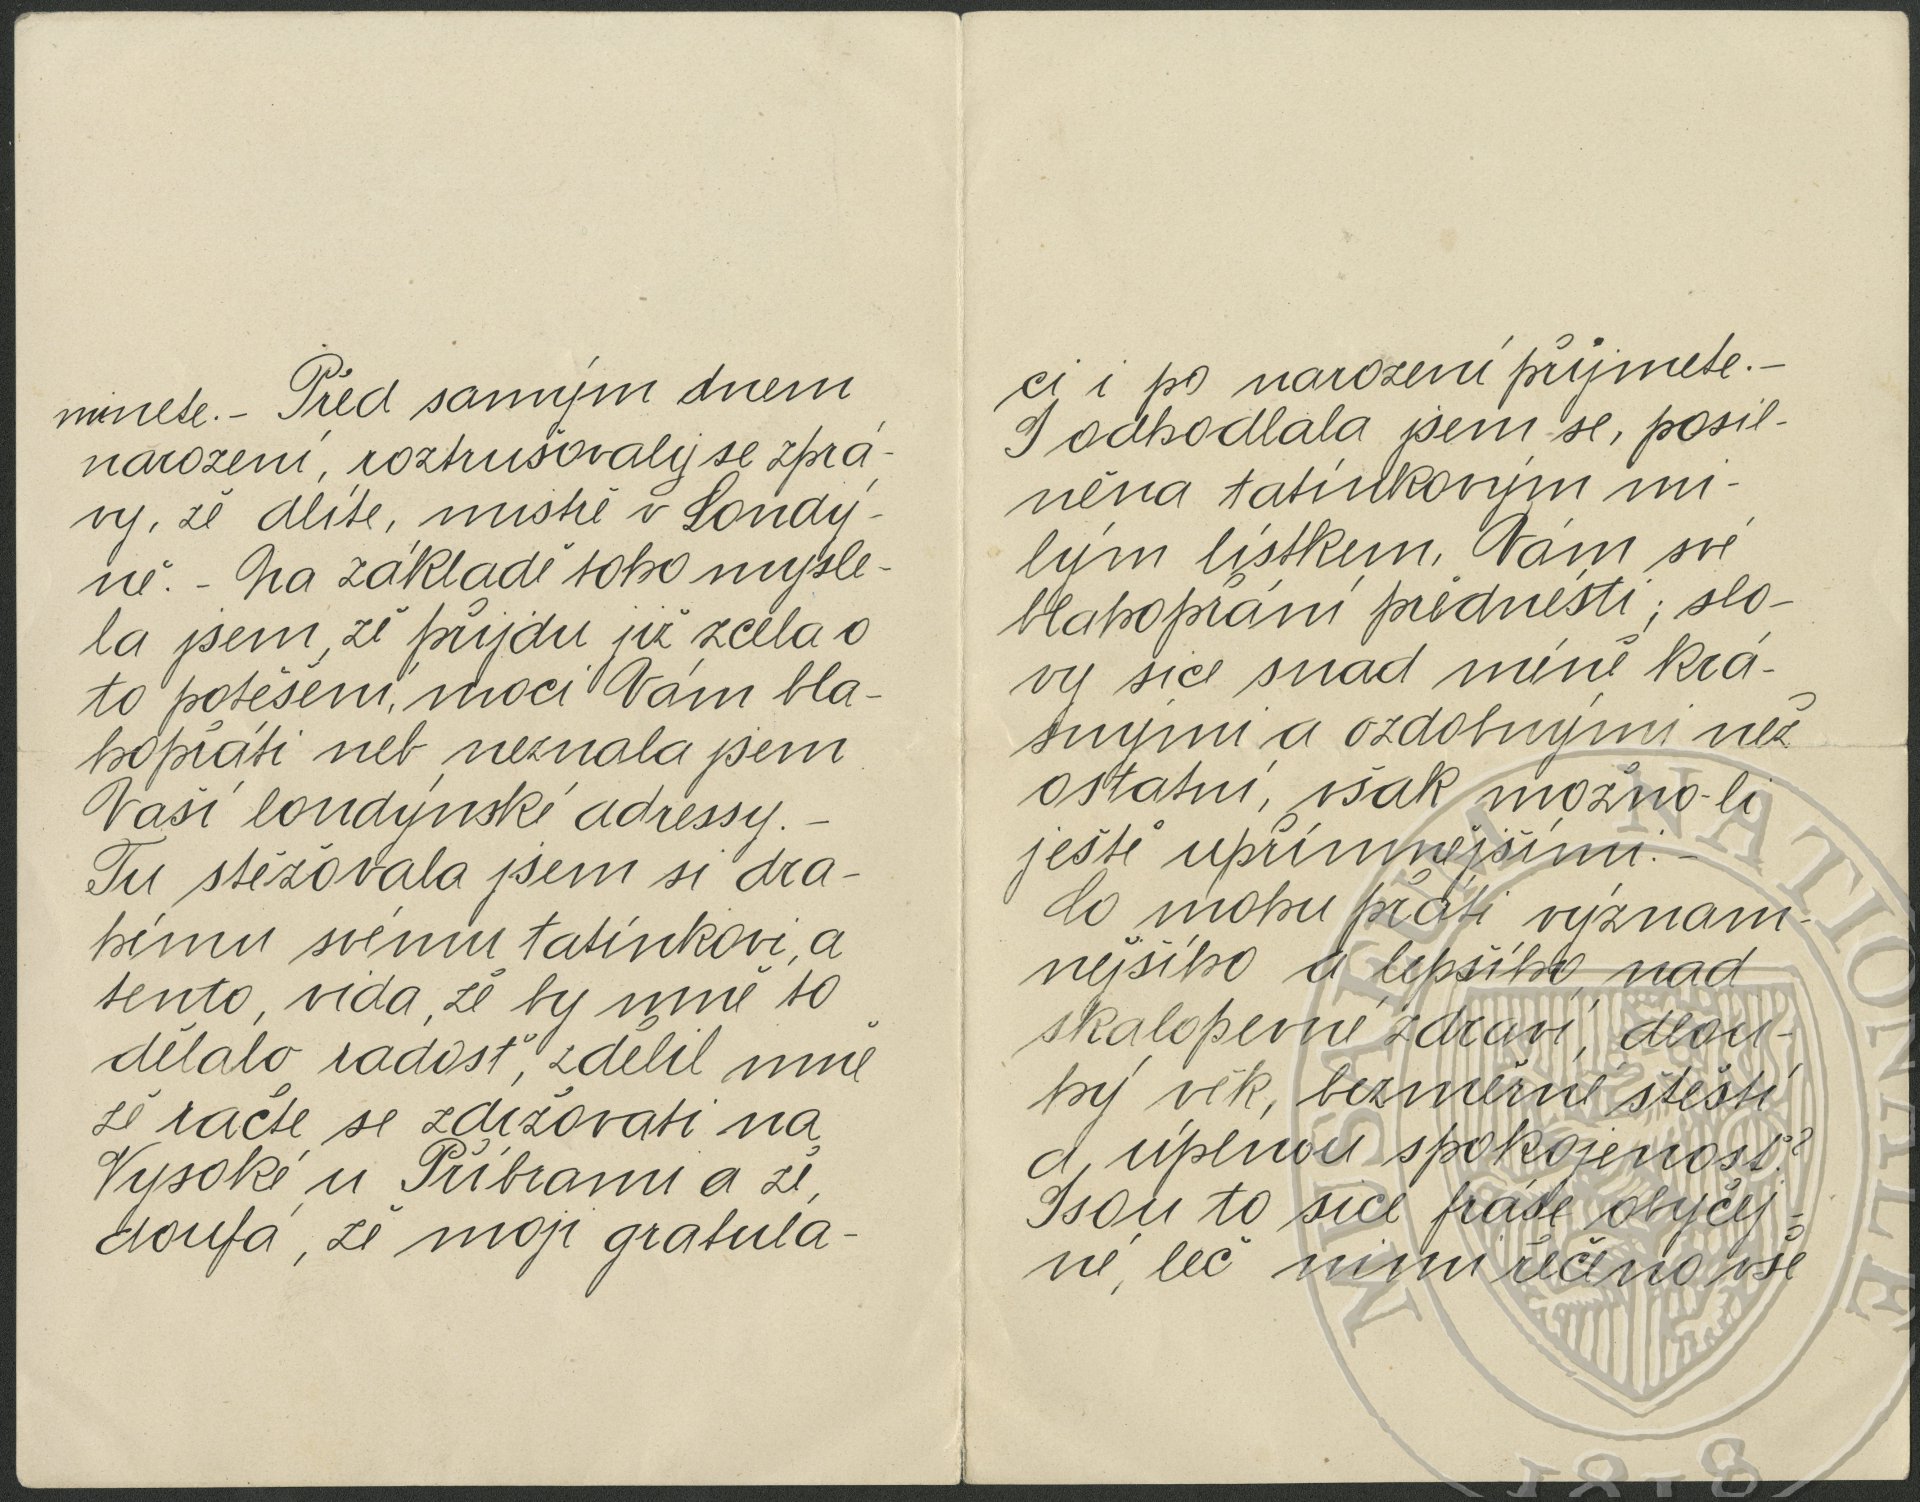 minete. - Před samým dnem
narození, roztrušovaly se zprá-
vy, že dlíte, mistře v Londý-
ně. - Na základě toho mysle-
la jsem, že přijdu již zcela o
to potěšení, moci Vám bla-
hopřáti neb neznala jsem
Vaší londýnské adressy. -
Tu stěžovala jsem si dra-
hému svému tatínkovi, a
tento, vida, že by mně to
dělalo radosť, zdělil mně
že račte se zdržovati na
Vysoké u Příbrami a že,
doufá, že moji gratula-
ci i po narození přijmete. -
I odhodlala jsem se, posil-
něna tatínkovým mi-
lým lístkem, Vám své
blahopřání přednésti; slo-
vy sice snad méně krá-
snými a ozdobnými než
ostatní, však možno-li
ještě upřímnějšími. -
Co mohu přáti význam-
nějšího a lepšího, nad
skalopevné zdraví, dlou-
hý věk, bezměrné štěstí
a, úplnou spokojenosť?
Jsou to sice fráse obyčej-
né, leč nimi řečeno vše
MUSEUM NATIONALE
1818